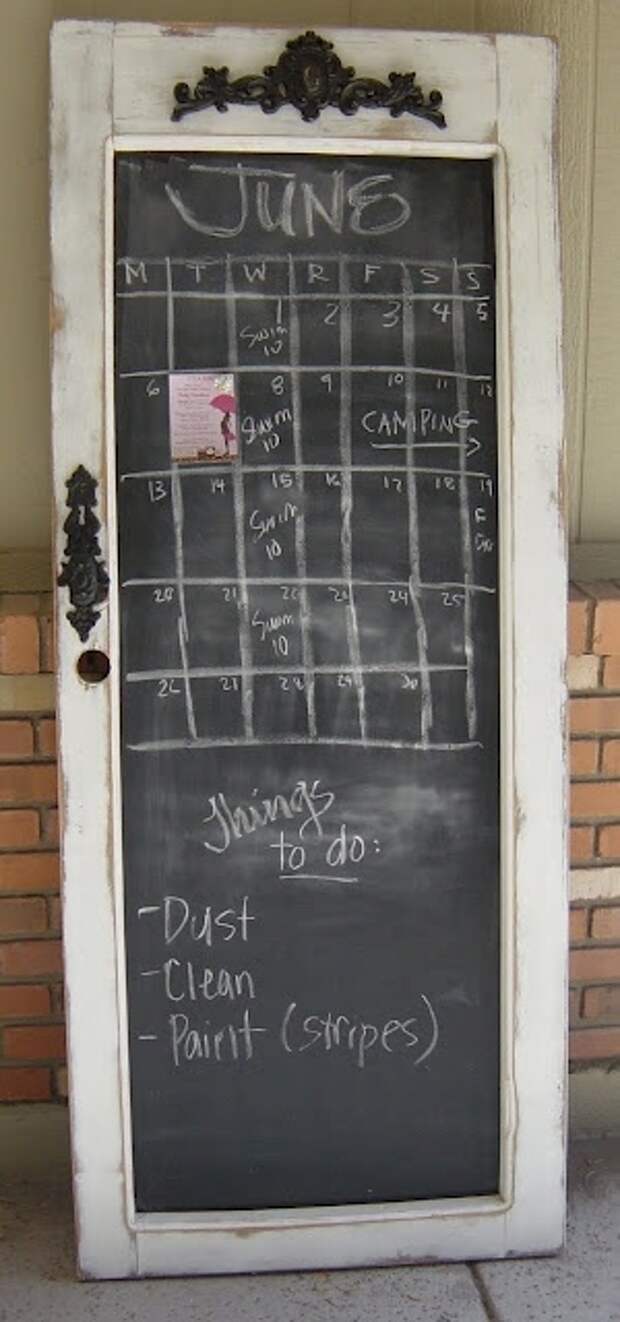 JUNE
M T W R F S S
1 2 3 4 5
Swim
10
6 8 9 10 11 12
Swim
10
CAMPING
13 14 15 16 17 18 19
Swim
10
F
20 21 22 23 24 25
Swim
10
30
Things
to do:
-Dust
-Clean
-Paint (stripes)